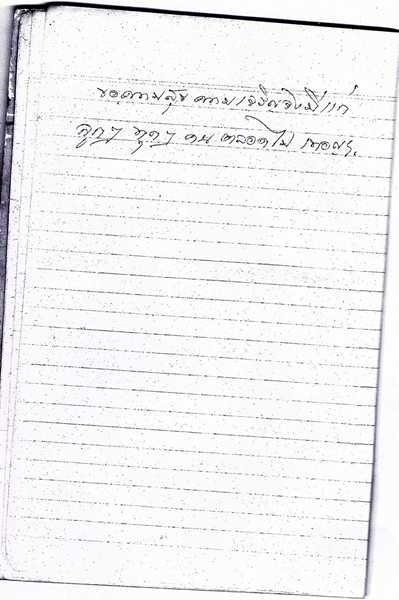 ขอความสุข ความเจริญจงมีแก่
ลูกๆ ทุกๆ คน ตลอดไป เทอญฯ